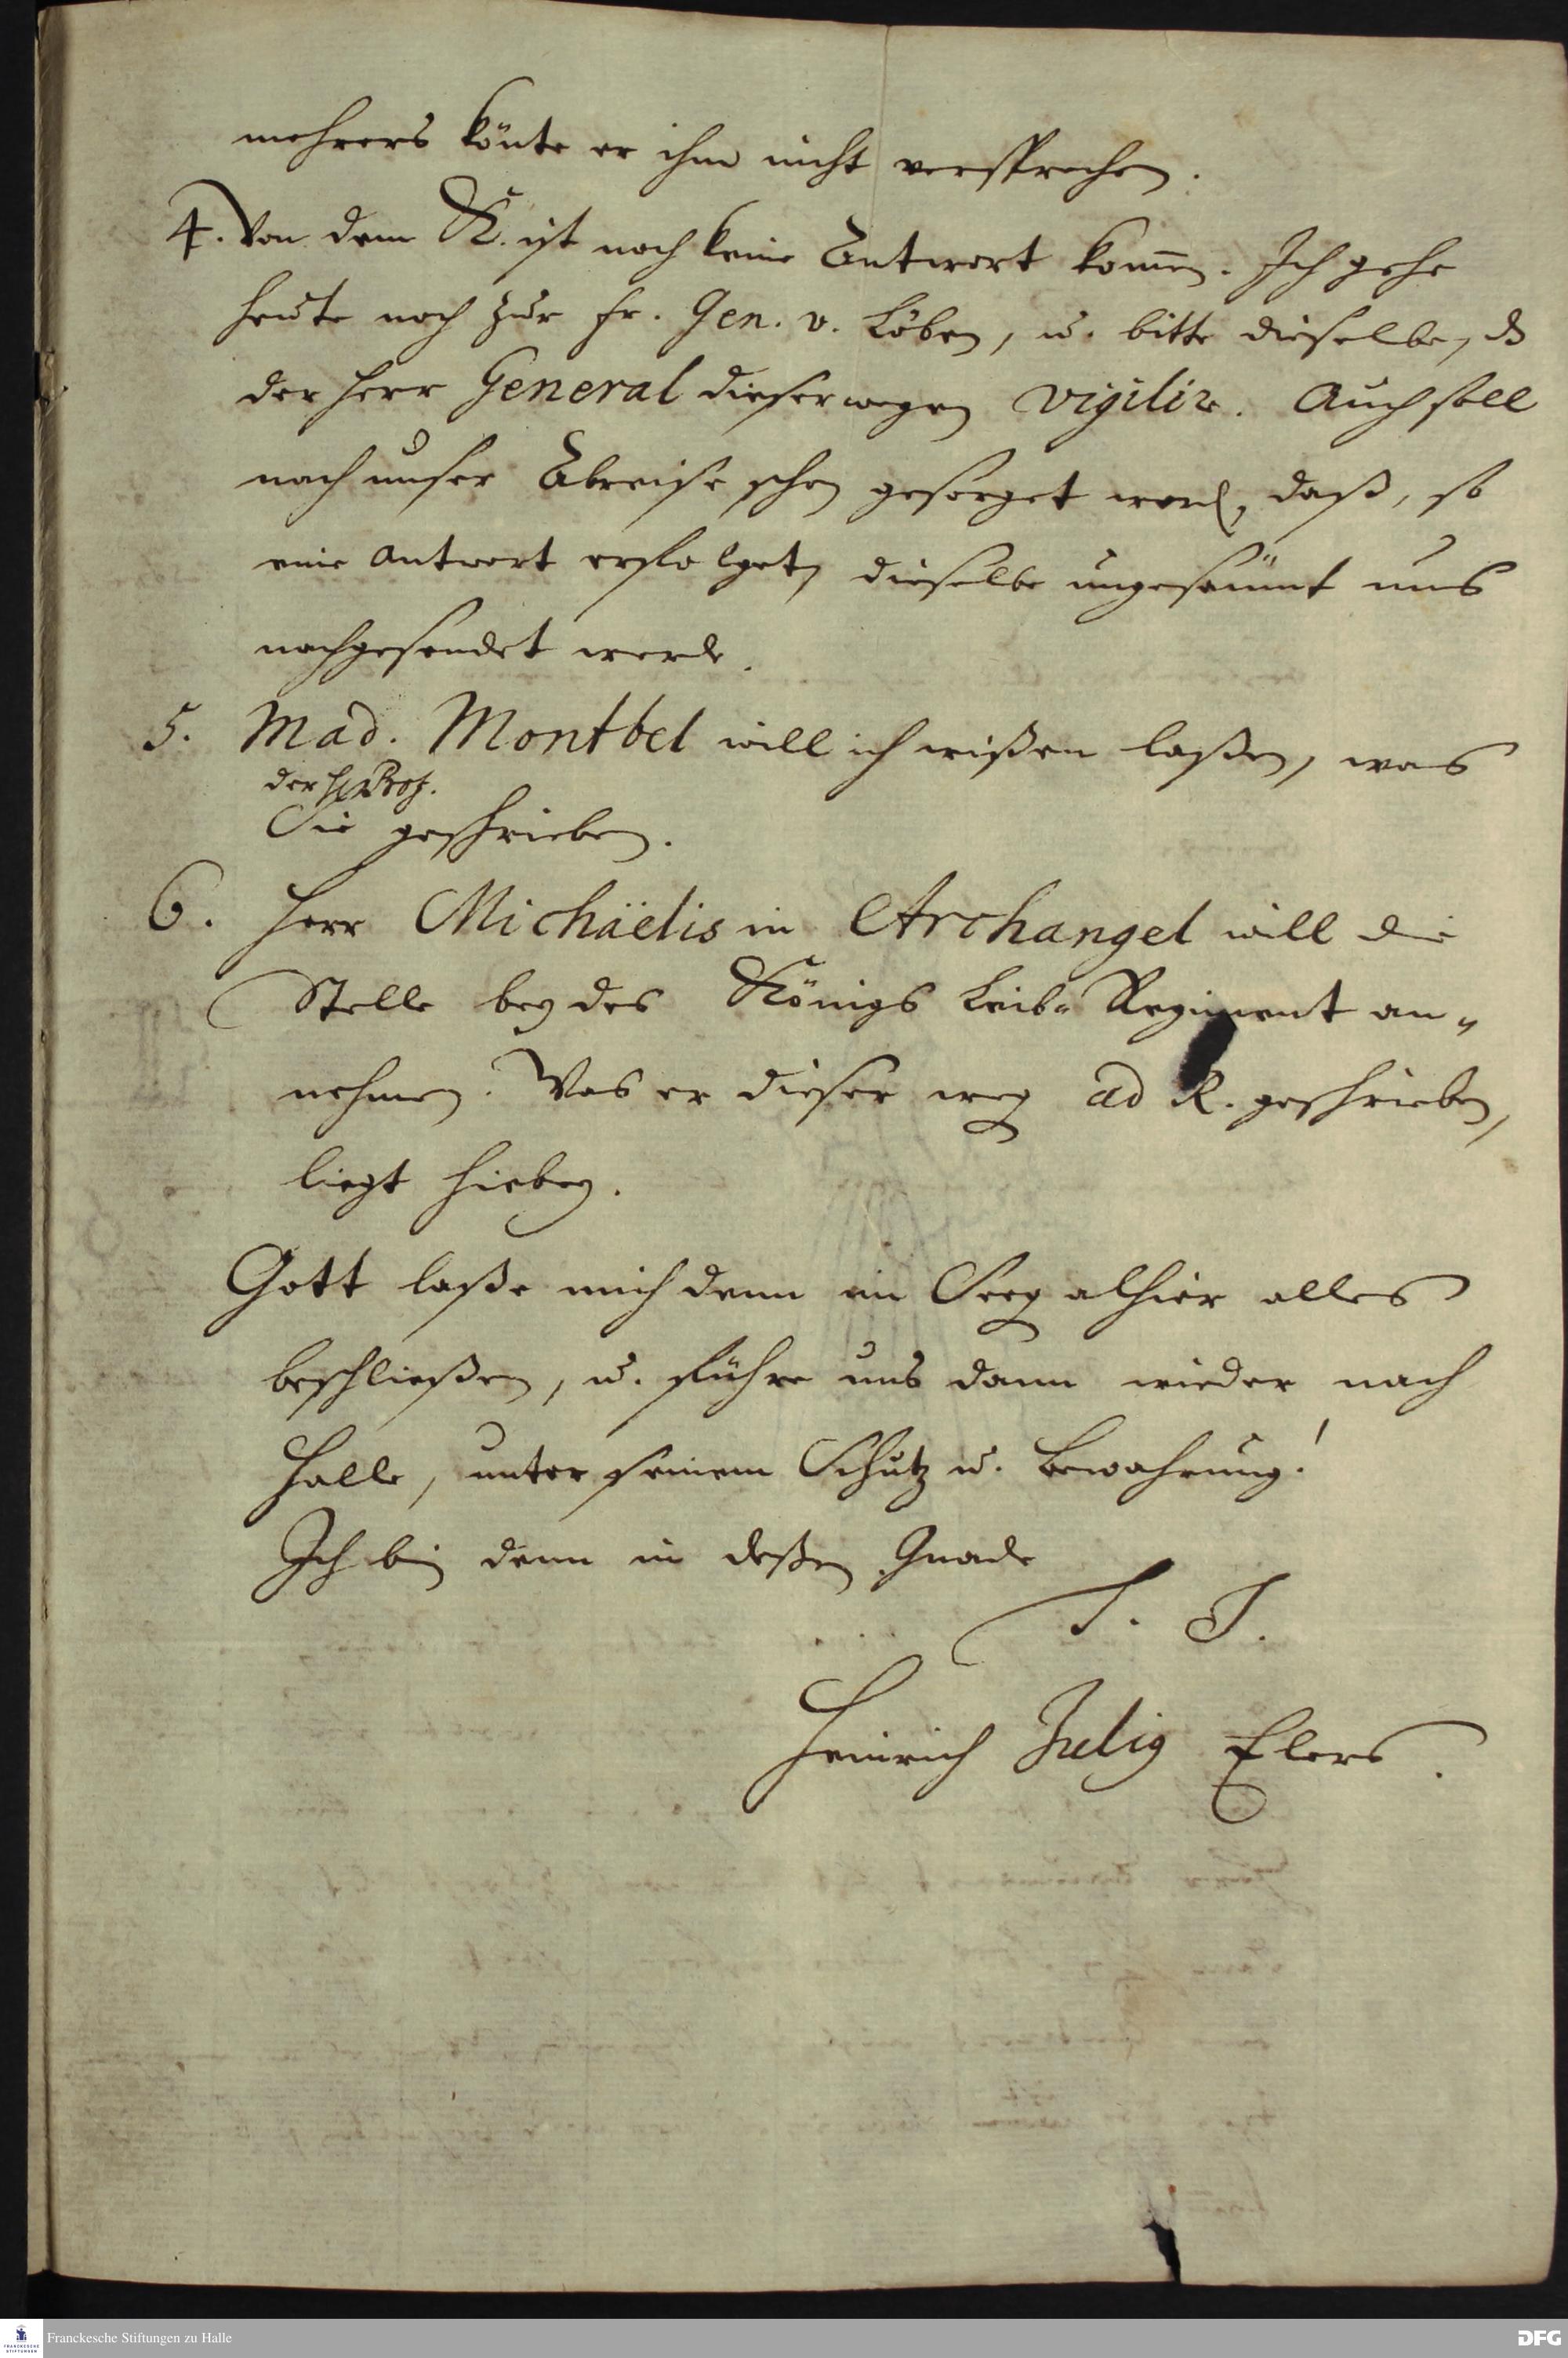 mehrers könte er ihm nicht versprechen.
4. Von dem K. ist noch keine Antwort kom̅en. Ich gehe
heute noch zur Fr. Gen. v. Löben, u. bitte dieselbe, dß
der Herr General dieserwegen vigilire. Auch soll
nach unser Abreise schon gesorget werden, daß, so
eine Antwort erfolget, dieselbe ungesäumt uns
nachgesendet werde.
5. Mad. Montbel will ich wißen laßen, was
der H. Prof.
Sie geschrieben.
6. Herr Michäelis in Archangel will die
Stelle bey des Königs Leib-Regiment an-
nehmen. Was er dieser weg ad R. geschrieben,
liegt hiebey.
Gott laße mich denn im Seeg alhier alles
beschließen, u. führe uns dann wieder nach
Halle, unter seinem Schutz u. Bewahrung!
Ich bin denn in deßen Gnade
T. T.
Heinrich Julig Elers.
Franckesche Stiftungen zu Halle
FRANCKESCHE STIFTUNGEN
DFG